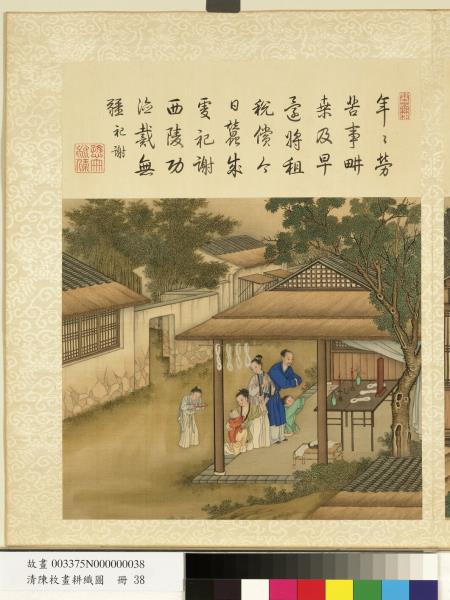 年〻勞
苦事畊
桒及早
還將租
稅償今
日蠶成
虔祀謝
西陵功
德戴無
疆 祀謝
故畫 003375N000000038
清陳枚畫耕織圖 冊 38